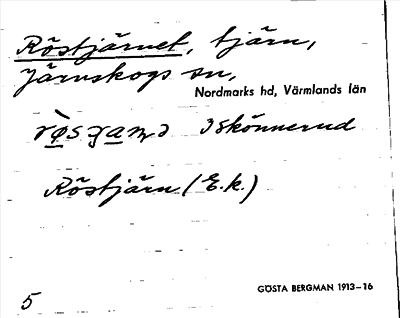 Röstjärnet, tjärn,
Järnskogs sn,
Nordmarks hd, Värmlands län
Iskönnerud
Röstjärn (E.k.)
GÖSTA BERGMAN 1913-16
5